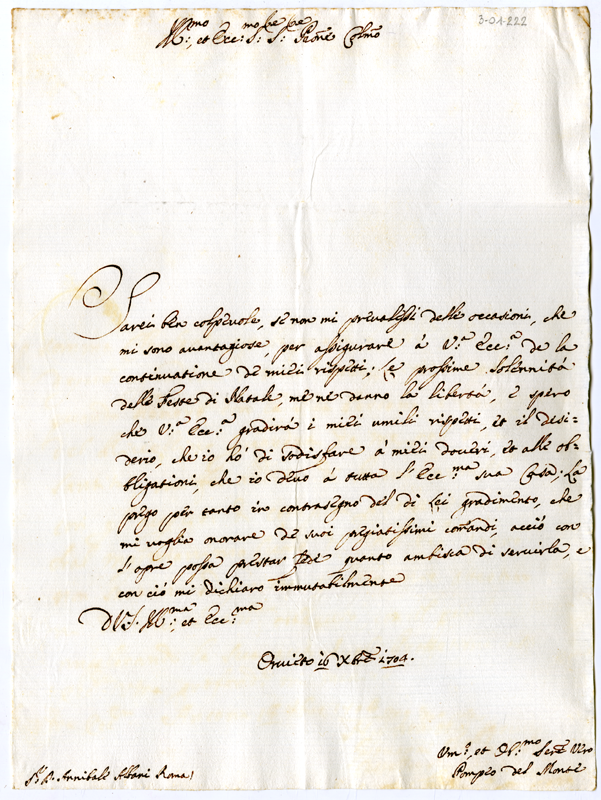 3-01-222
Ill:mo, et Ecc:mo Sre Sre Pròne Colmo
Sarei ben colpevole, se non mi prevalessi delle occasioni, che
mi sono avantagiose, per assigurare à V.a Ecc.a de la
continuatione de miei rispeti; Le prossime Solennità
delle Feste di Natale, me ne danno la libertà, e spero
che V.a Ecc.a gradirà i miei umili rispeti, et il desi-
derio, che io hò di sodisfare à miei doueri, et alle ob-
bligationi, che io deuo à tutta l'Ecc.ma sua Casa; La
prego per tanto in contrasegno del di Lei gradimento, che
mi voglia onorare de suoi pregiatissimi comandi, acciò con
l'opre possa prestar fede quanto ambisca di seruirla, e
con ciò mi dichiaro immutabilmente
D V.S. Ill:ma, et Ecc:ma
Orvieto 16 Xbre 1704.
Um:e, et Obl:mo Sere Vero
Pompeo del Monte
Annibale Albani Roma